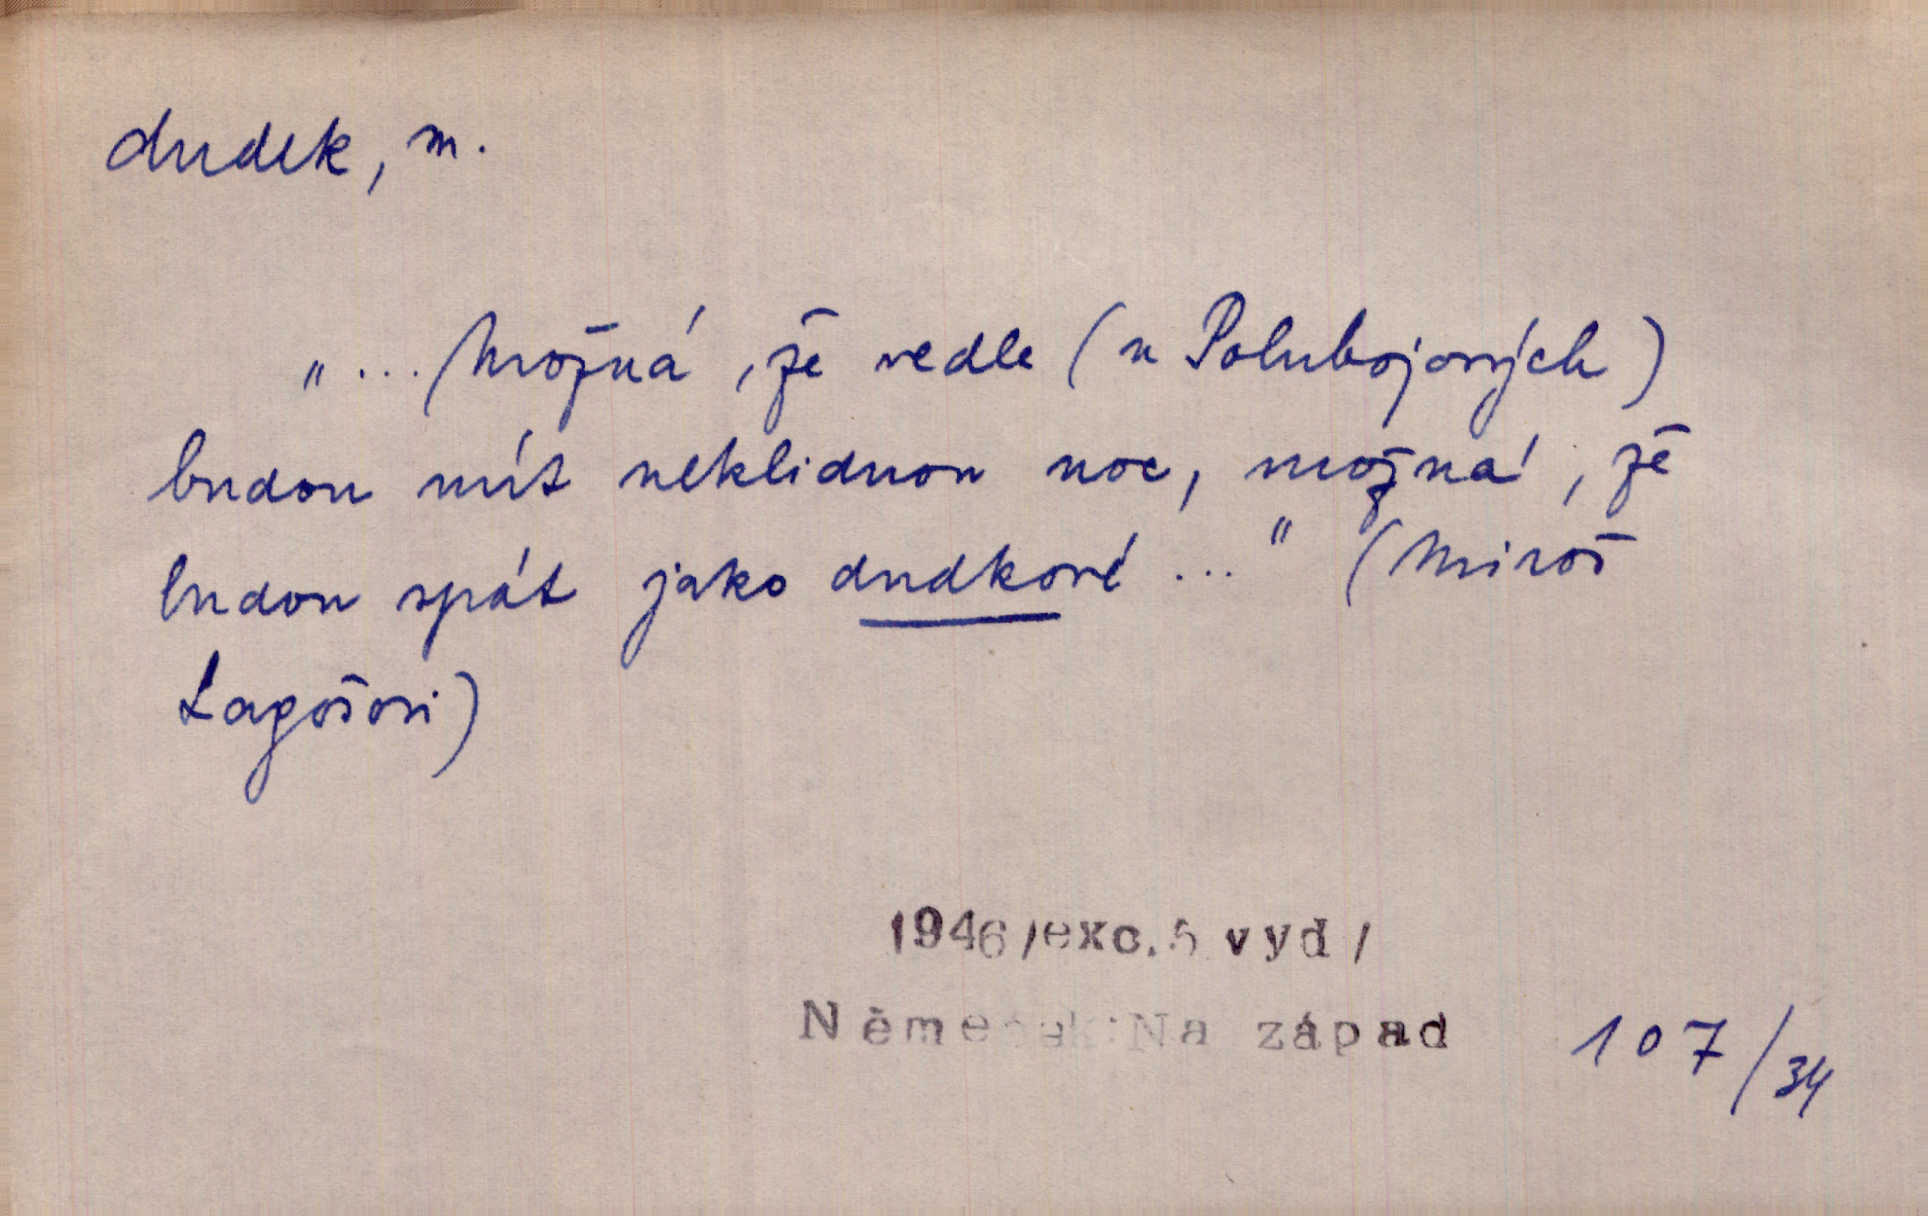 dudek, m.
„... Možná, že vedle (u Polubojových)
budou mít neklidnou noc, možná, že
budou spát jako dudkové ..." (Miroš
Lagošovi)
1946/exc. 5 vyd/
Němeček: Na západ
107/34